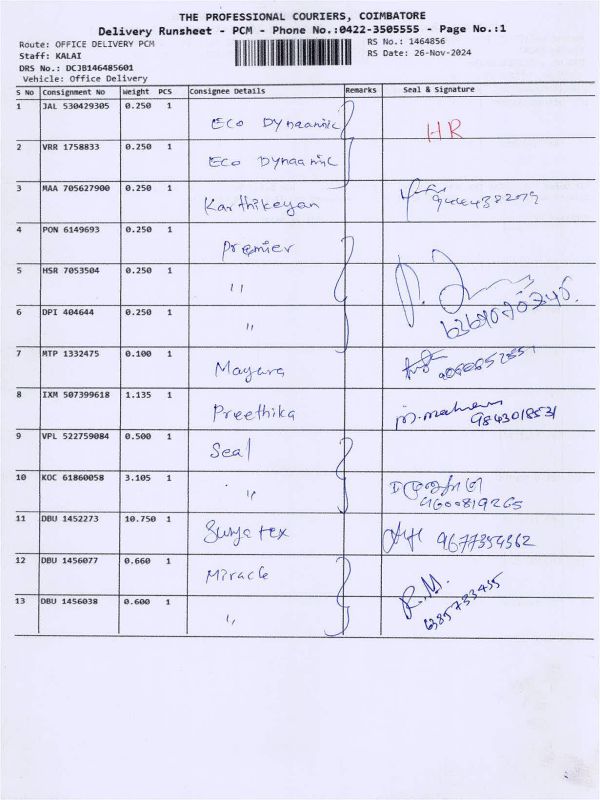 THE PROFESSIONAL COURIERS, COIMBATORE
Delivery Runsheet - PCM - Phone No.:0422-3505555 - Page No.:1
Route: OFFICE DELIVERY PCM
RS No.: 1464856
Staff: KALAI
RS Date: 26-Nov-2024
DRS No.: DCJB146485601
Vehicle: Office Delivery
S No Consignment No Weight PCS Consignee Details Remarks Seal & Signature
1 JAL 530429305 0.250 1 Eco Dynaamic HR
2 VRR 1758833 0.250 1 Eco Dynaamic
3 MAA 705627900 0.250 1 Karthikeyan
4 PON 6149693 0.250 1 Premier
5 HSR 7053504 0.250 1 "
6 DPI 404644 0.250 1 "
7 MTP 1332475 0.100 1 Mayura
8 IXM 507399618 1.135 1 Preethika 9843018531
9 VPL 522759084 0.500 1 Seal
10 KOC 61860058 3.105 1 " 9600819265
11 DBU 1452273 10.750 1 Surya tex 9677354362
12 DBU 1456077 0.660 1 Miracle R.M.
13 DBU 1456038 0.600 1 "